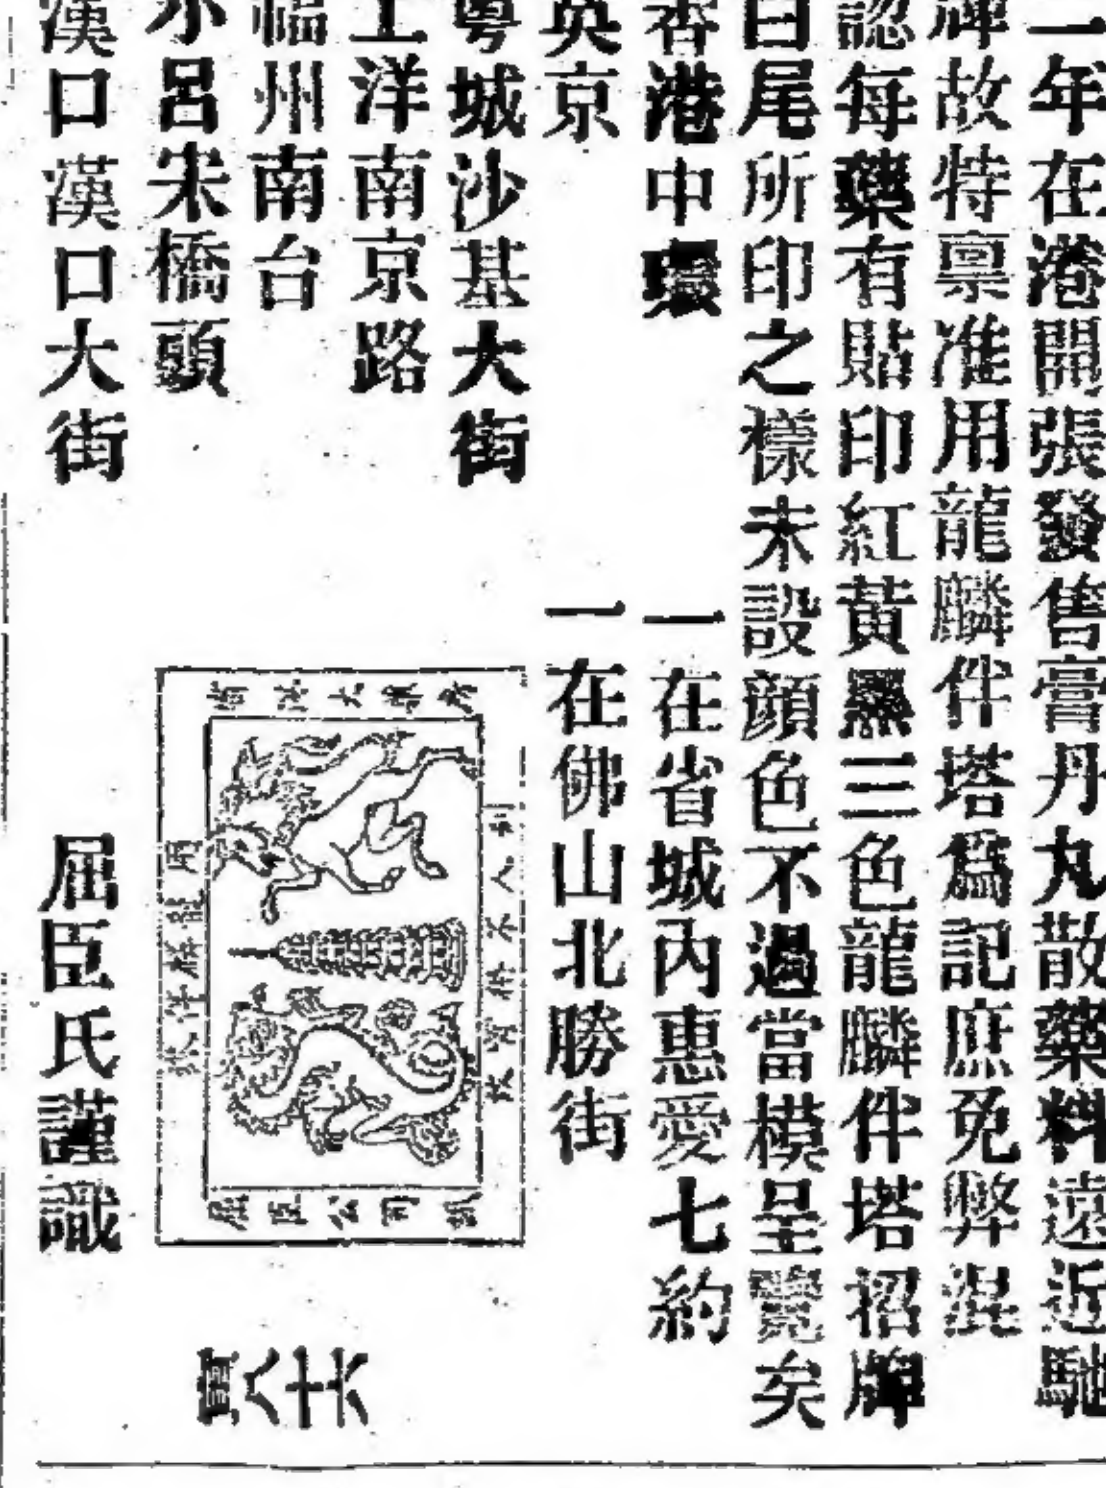 一年在港開張發售膏丹丸散藥料遠近馳
故特禀准用龍麟伴塔為記庶免弊混
認每藥有貼印紅黃黑三色龍麟伴塔招牌
白尾所印之樣未設顏色不過當模呈覽矣
香港中環 一在省城內惠愛七約
英京 一在佛山北勝街
粵城沙基大街
上洋南京路
福州南台
小呂宋橋頭
漢口漢口大街
屈臣氏謹識
屈臣公司